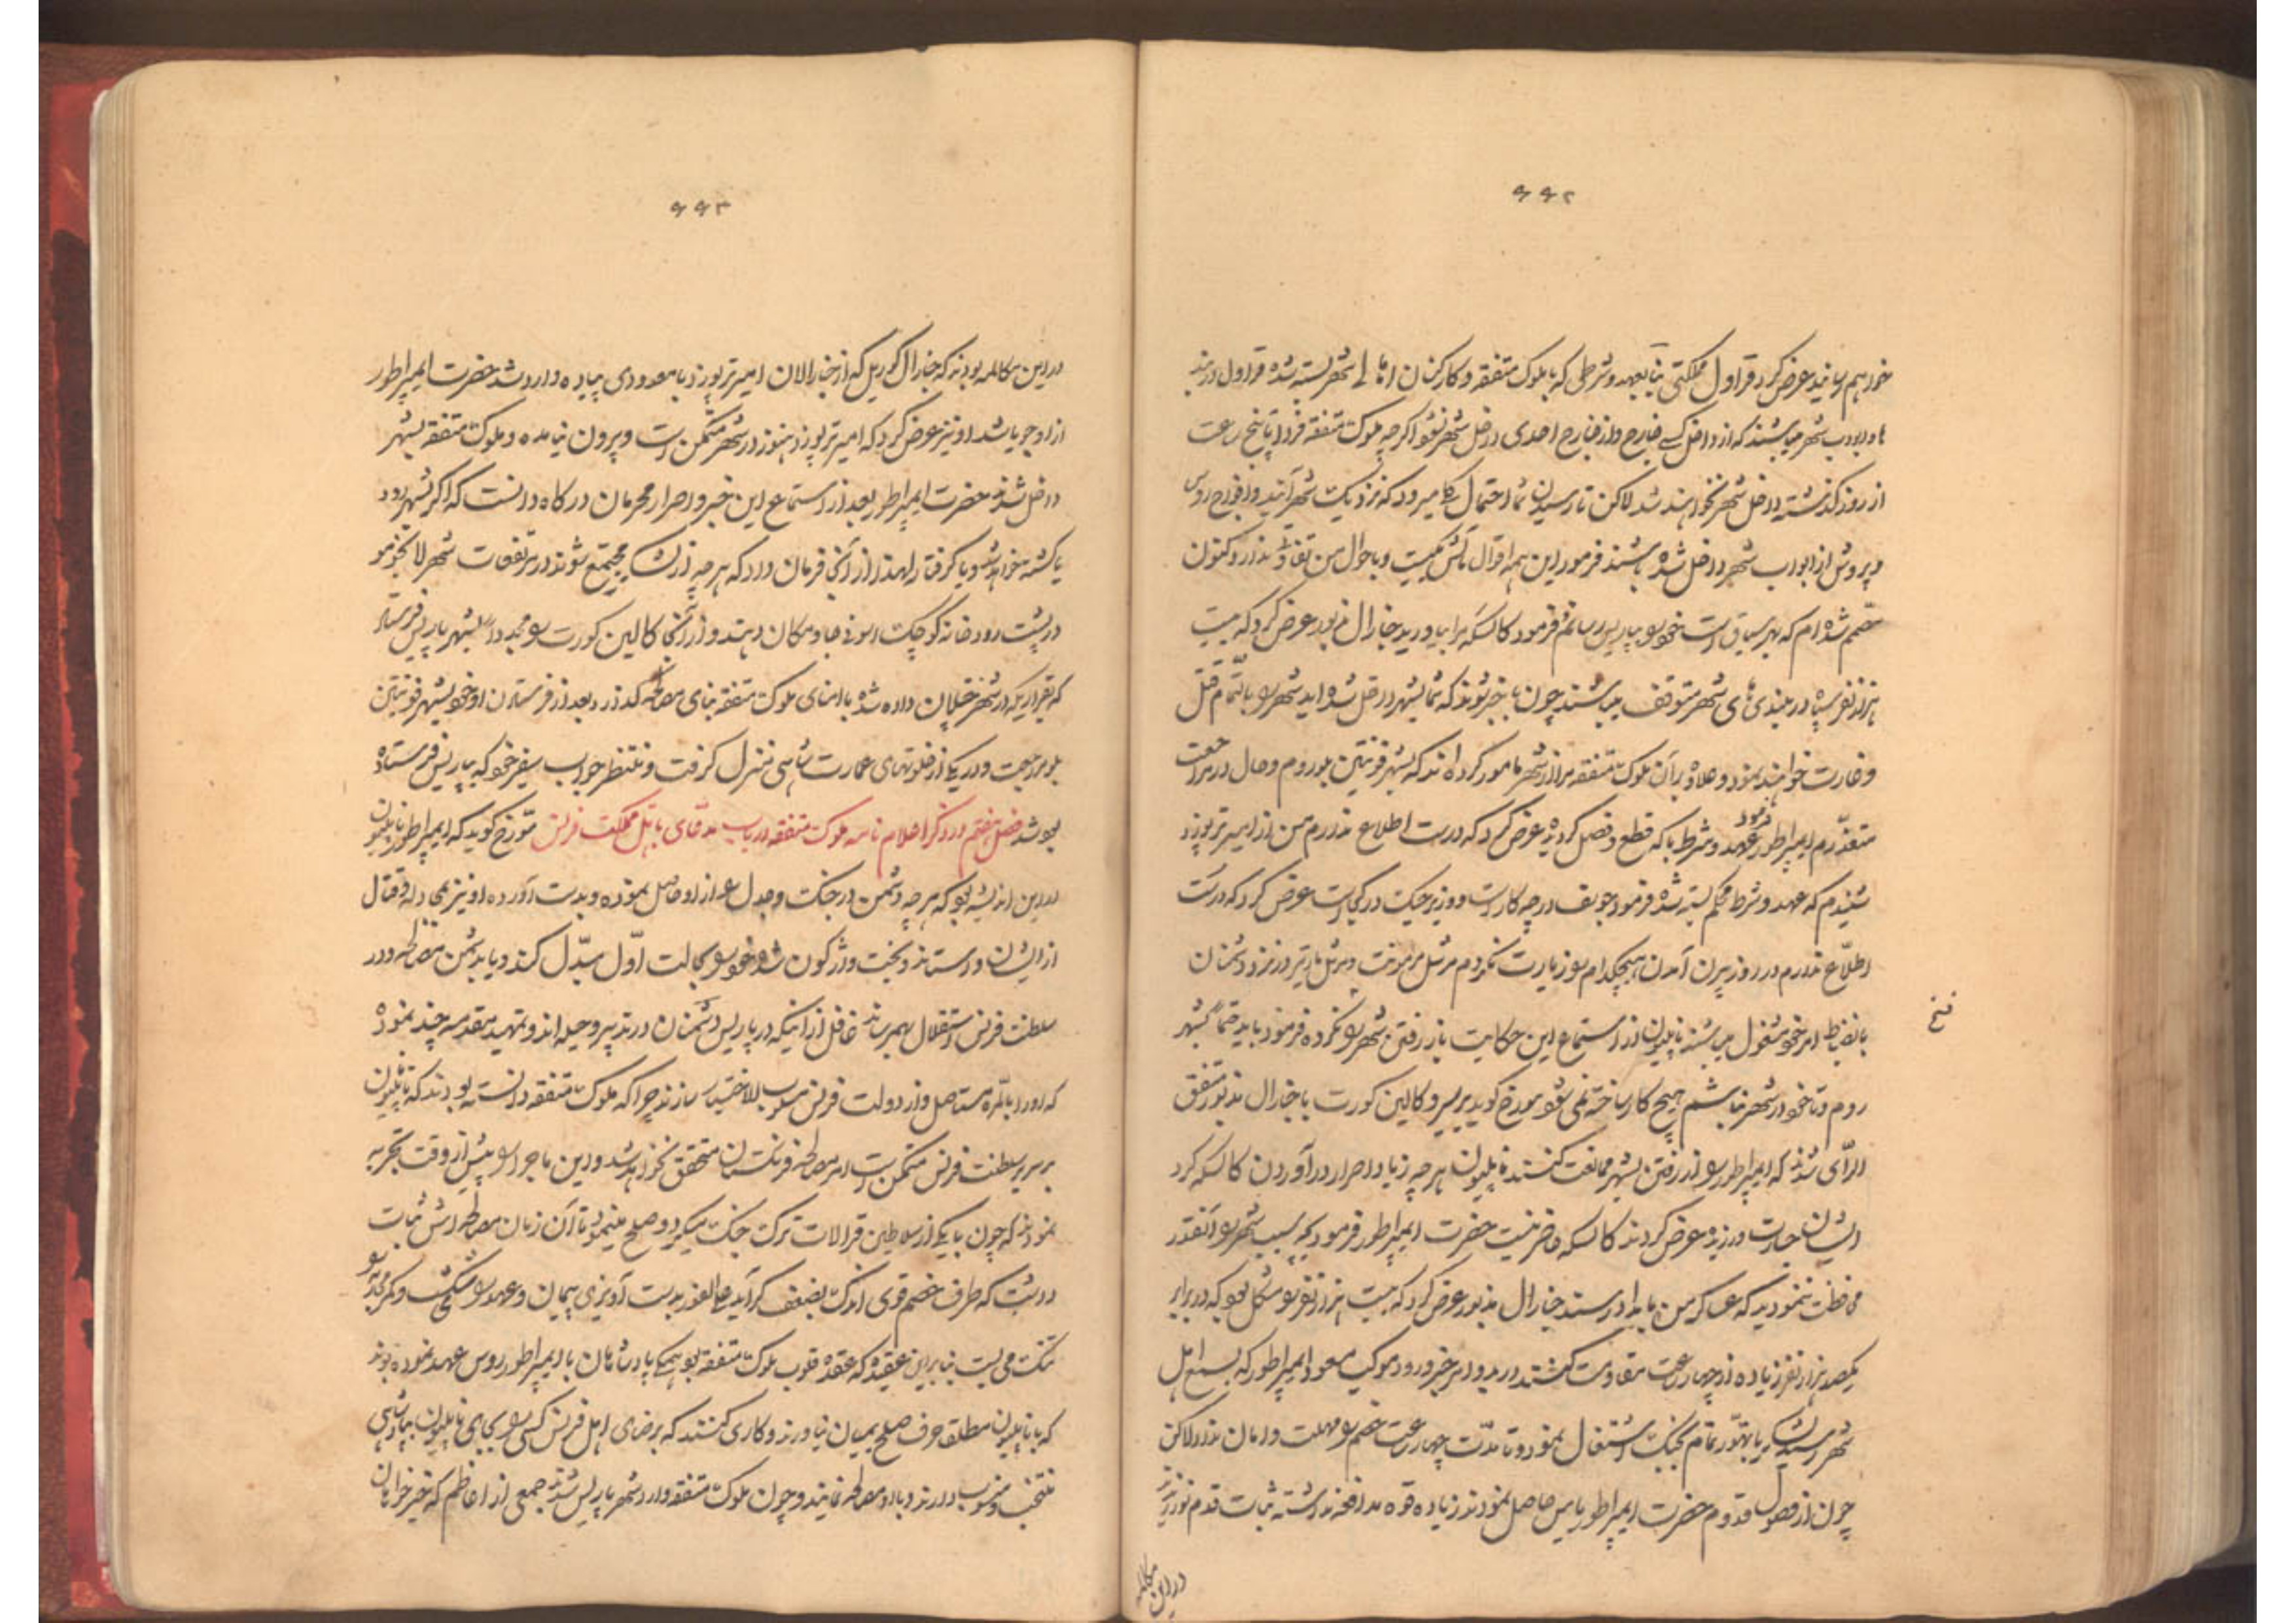 ۶۶۲
خود هم رسانید عرض کرد قراول مملکتی بنا بعهد و شرطی که با ملوک متفقه و کارکنان اهالی شهر بسته شده قراول دارند
ابواب شهر میباشند که از داخل کسی خارج و از خارج احدی داخل شهر نشود اگرچه ملوک متفقه فردا پنج ساعت
از روز گذشته داخل شهر نخواهند شد لاکن تا رسیدن شما احتمال کلی میرود که نزدیک شهر آیند و افواج روس
و پروش از ابواب شهر داخل شده باشند فرمود این همه اقوال و باحوال من تفاوت ندارد اکنون
مصمم شده ام که بهر سیاق است خود را بپاریس رسانم فرمود کالسکه مرا بیاورید جنارال مزبور عرض کرد که بیست
هزار نفر سپاه در بلندی های شهر متوقف میباشند چون با خبر شوند که شما بشهر داخل شده اید شهر را بالتمام قتل
و غارت خواهند نمود و علاوه بر آن ملوک متفقه مرا از شهر مامور کرده اند که بشهر فونتین بلو روم و حال در مراجعت
متعذرم ایمپراطور فرمود عهد و شرط با که قطع و فصل کردید عرض کرد که درست اطلاع ندارم من از امیر ترویزد
شنیدم که عهد و شرط محکم بسته شده فرمود جوسف در چه کار است و وزیر جنگ در کجا است عرض کرد که درست
اطلاع ندارم در روز بیرون آمدن هیچکدام را زیارت نکردم مرشل مرمونت و مرشل مارتیر در نزد دشمنان
بانضباط امر خود مشغول میباشند ناپلیون از استماع این حکایت باز رفتن شهر را نکرده فرمود باید حتماً بشهر
روم و تا خود در شهر نباشم هیچ کار ساخته نمی شود مورخ گوید برتیر و کالین کورت با جنارال مذبور متفق
الرأی شدند که ایمپراطور را از رفتن بشهر ممانعت کنند ناپلیون هر چه زیاد اصرار در آوردن کالسکه کرد
ایشان جسارت ورزیده عرض کردند کالسکه حاضر نیست حضرت ایمپراطور فرمود بچه سبب شهر را آنقدر
محافظت ننمودید که عساکر من بامداد رسند جنارال مذبور عرض کرد که بیست هزار نفر را مشکل بود که در برابر
یکصد هزار نفر زیاده از چهار ساعت مقاومت کنند خبر ورود موکب مسعود ایمپراطور که بسمع اهل
شهر رسید لشکر با تهور تمام بجنگ اشتغال نمود و تا مدت چهار ساعت خصم را مهلت و امان نداد لاکن
چون از فصول قدوم حضرت ایمپراطور یاس حاصل نمودند زیاده قوه مدافعه نداشته ثبات قدم نورزیدند
فتح
در این مکالمه
۶۶۳
در این مکالمه بودند که جنارال که از جنارالان امیر ترویزد با معدودی پیاده وارد شد حضرت ایمپراطور
از او جویا شد او نیز عرض کرد که امیر ترویزد هنوز در شهر متمکن است و بیرون نیامده و ملوک متفقه بشهر
داخل شدند حضرت ایمپراطور بعد از استماع این خبر و اصرار محرمان درگاه دانست که اگر بشهر رود
یا کشته خواهد شد و یا گرفتار لهذا از آنجا فرمان داد که هر چه از لشکر مجتمع شوند در مرتفعات شهر
در پشت رودخانه کوچک جا و مکان دهند و از آنجا کالین کورت را مجدداً بشهر پاریس فرستاد
که بقراریکه در شهر داده شده با امنای ملوک متفقه بنای مصالحه گذارد بعد از فرستادن او خود بشهر فونتین
بلو مراجعت و در یکی از خلوتهای عمارت شاهی منزل گرفت و منتظر جواب سفیر خود که بپاریس فرستاده
بود شد فصل هفتم در ذکر اعلام نامه ملوک متفقه در باب مدعای باهل مملکت فرنس مورخ گوید که ایمپراطور ناپلیون
در این اندیشه بود که هر چه دشمن در جنگ و جدل از او حاصل نموده و بدست آورده او نیز بمجادله و قتال
از ایشان واستاند و بخت واژگون شده خود را بحالت اول مبدل کند و یا بدشمن مصالحه و در
سلطنت فرنس استقلال بهم رساند غافل از اینکه در پاریس دشمنان در تدبیر و حیله اند و تمهید مقدمه چند نموده
که او را بالمره مستاصل و از دولت فرنس مسلوب الاختیار سازند چرا که ملوک متفقه دانسته بودند که تا ناپلیون
بر سریر سلطنت فرنس متمکن است امر مصالحه فرنگستان متحقق نخواهد شد و این ماجرا را پیش از وقت تجربه
نموده اند که چون با یکی از سلاطین قرالات ترک جنگ میکرد و صلح مینمود تا آن زمان مصالحه اش ثبات
داشت که طرف خصم قوی اندک بضعف گرآید فی الفور بدست آویزی پیمان و عهد را شکست و کمر
تنگ می بست بنا بر این عقیده که عقده قلوب ملوک متفقه بود همگی پادشاهان با ایمپراطور روس عهد نموده بودند
که با ناپلیون مطلقا حرف صلح بمیان نیاورند و کاری کنند که برضای اهل فرنس کسی را بجای ناپلیون بپادشاهی
منتخب و منصوب دارند و با او مصالحه نمایند و چون ملوک متفقه وارد شهر پاریس شدند جمعی از اعاظم که خیر خواهان